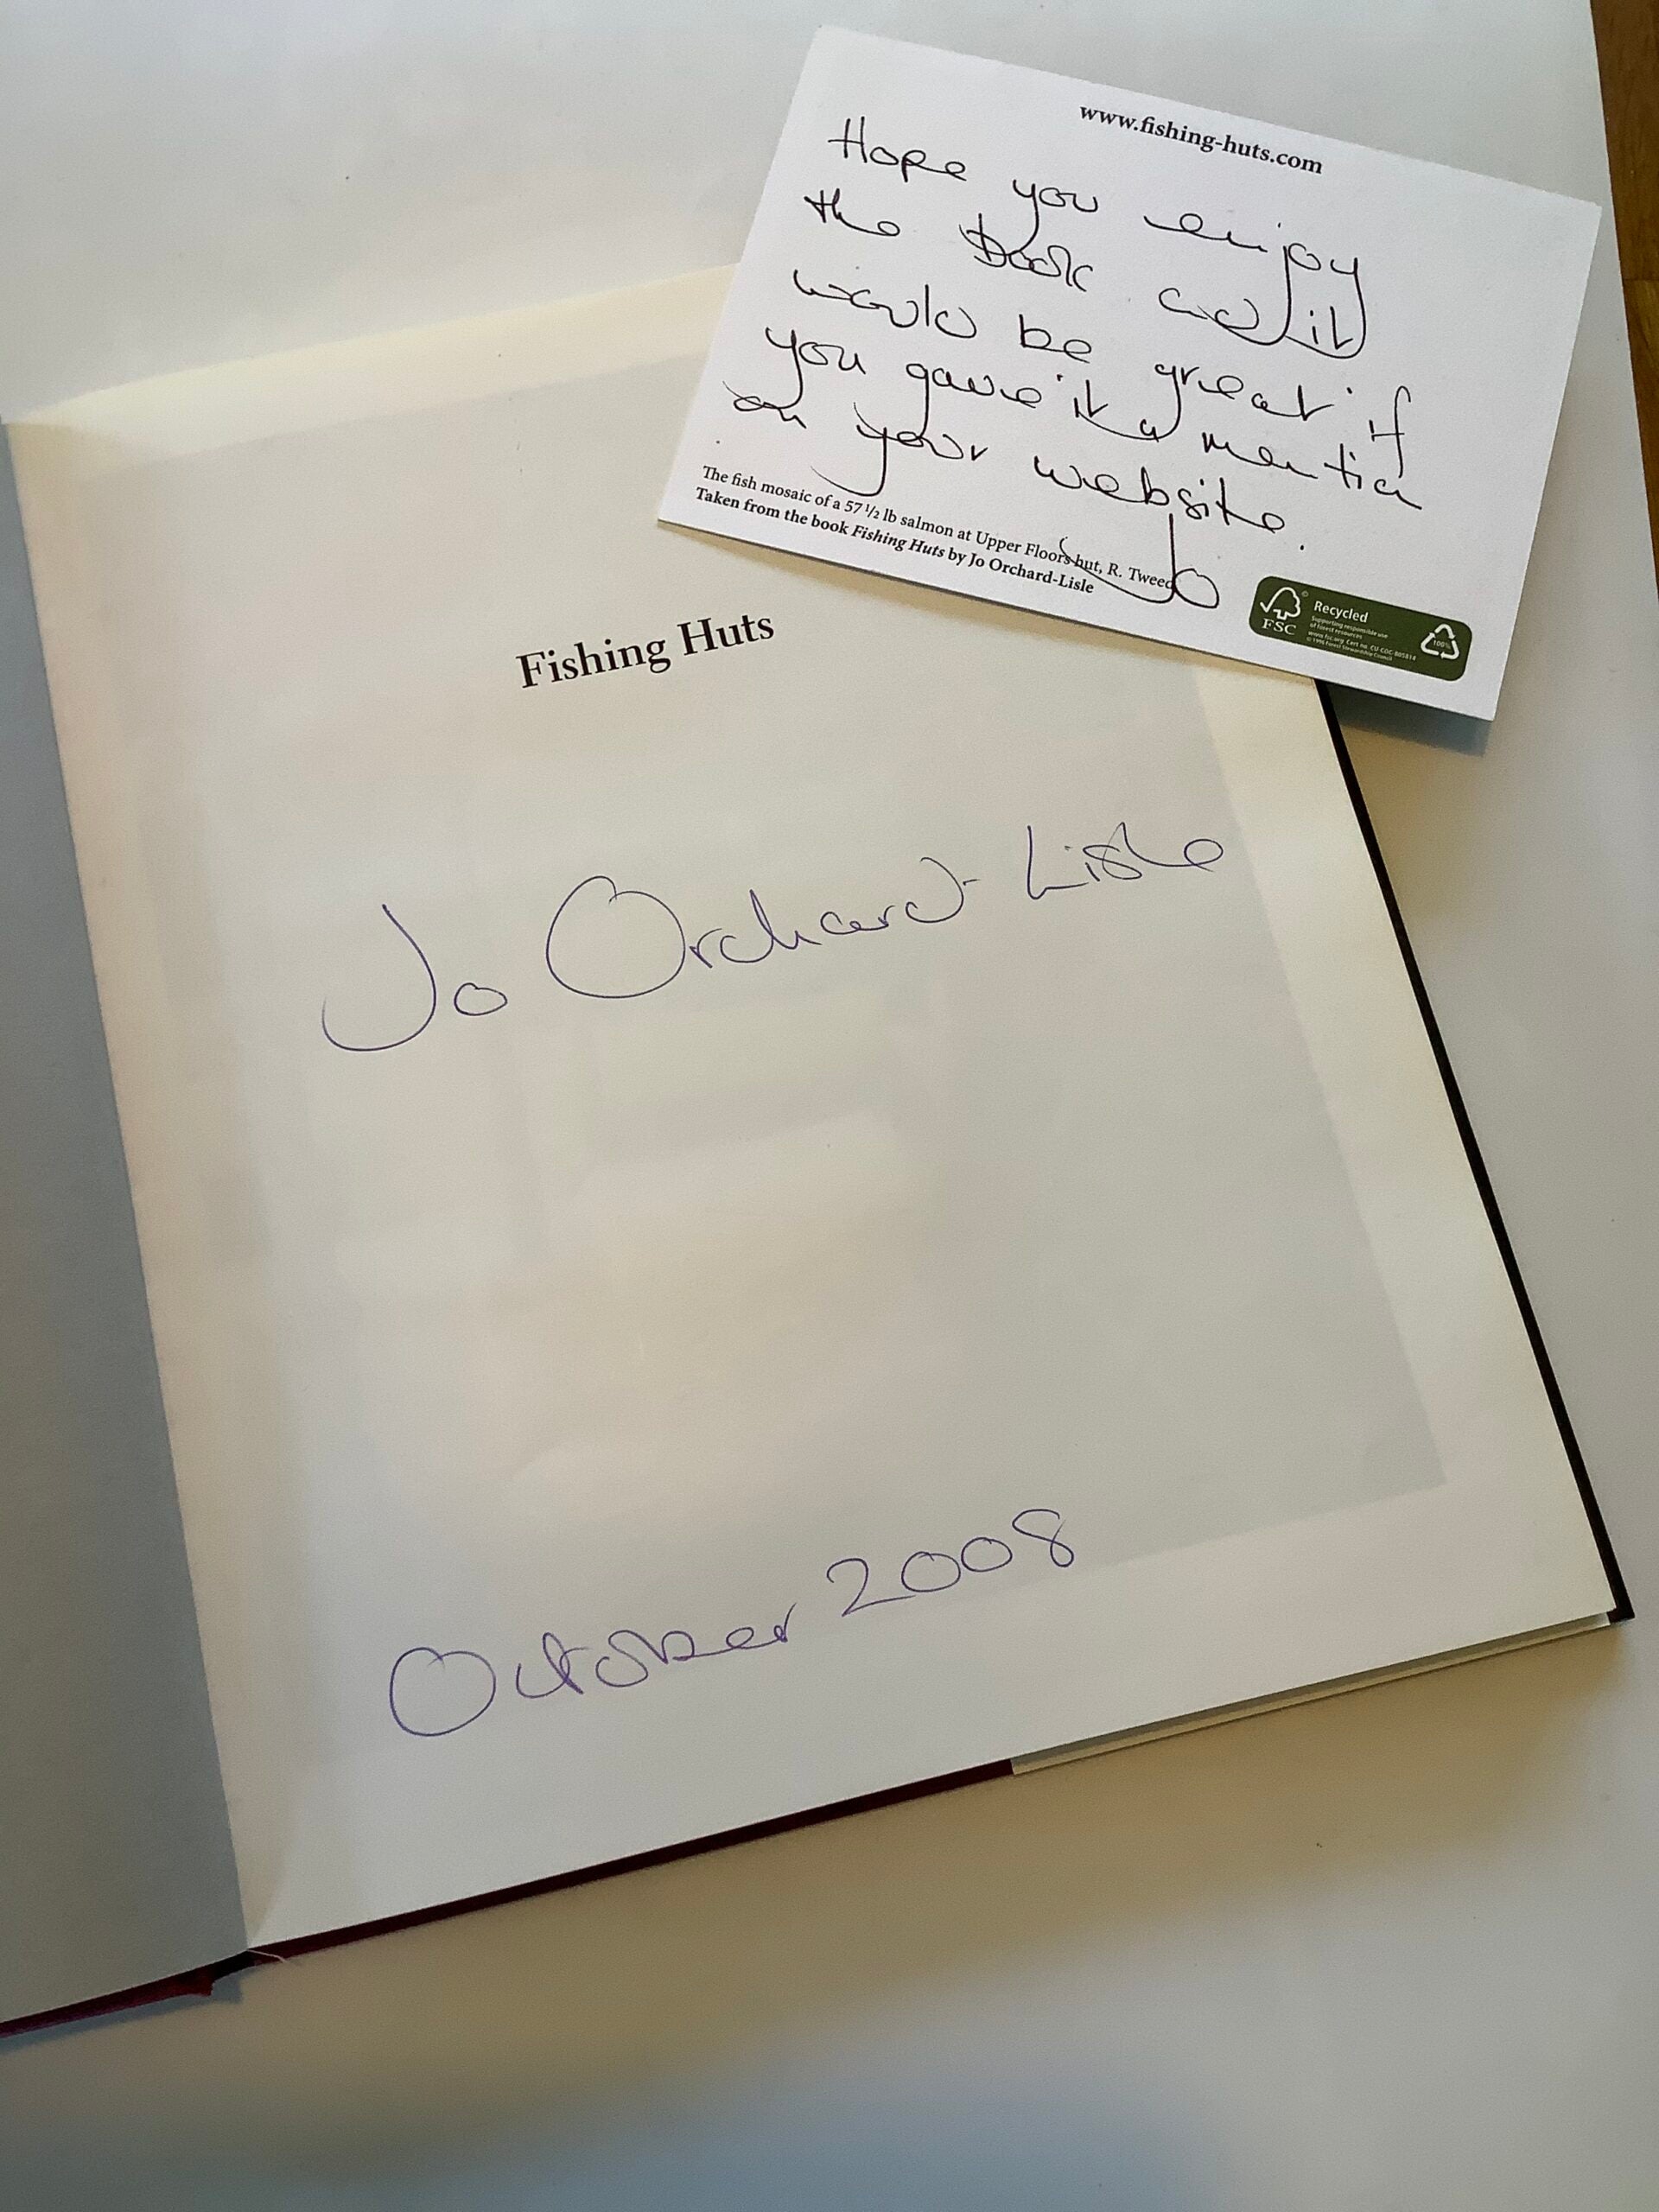 www.fishing-huts.com
Hope you enjoy
the book and it
would be great if
you gave it a mention
on your website.
Jo
The fish mosaic of a 57 ½ lb salmon at Upper Floors hut, R. Tweed
Taken from the book Fishing Huts by Jo Orchard-Lisle
FSC
Recycled
Supporting responsible use
of forest resources
www.fsc.org Cert no. CU-COC-805814
© 1996 Forest Stewardship Council
100%
Fishing Huts
Jo Orchard-Lisle
October 2008